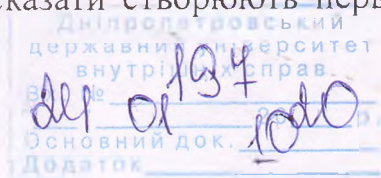 сказати створюють перв
Дніпропетровський
державний університет
внутрішніх справ
Вх № 197
24 01 2020 р.
Основний док. 10
Додаток